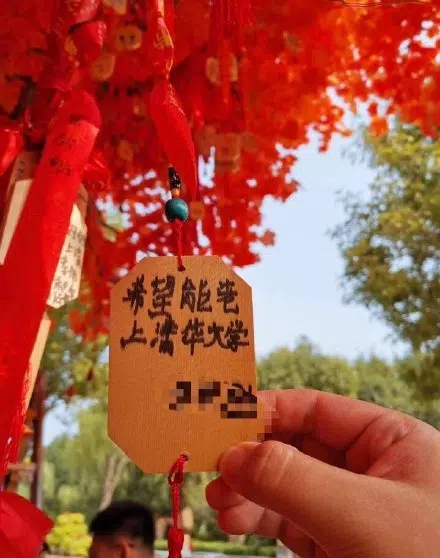 希望能考
上清华大学